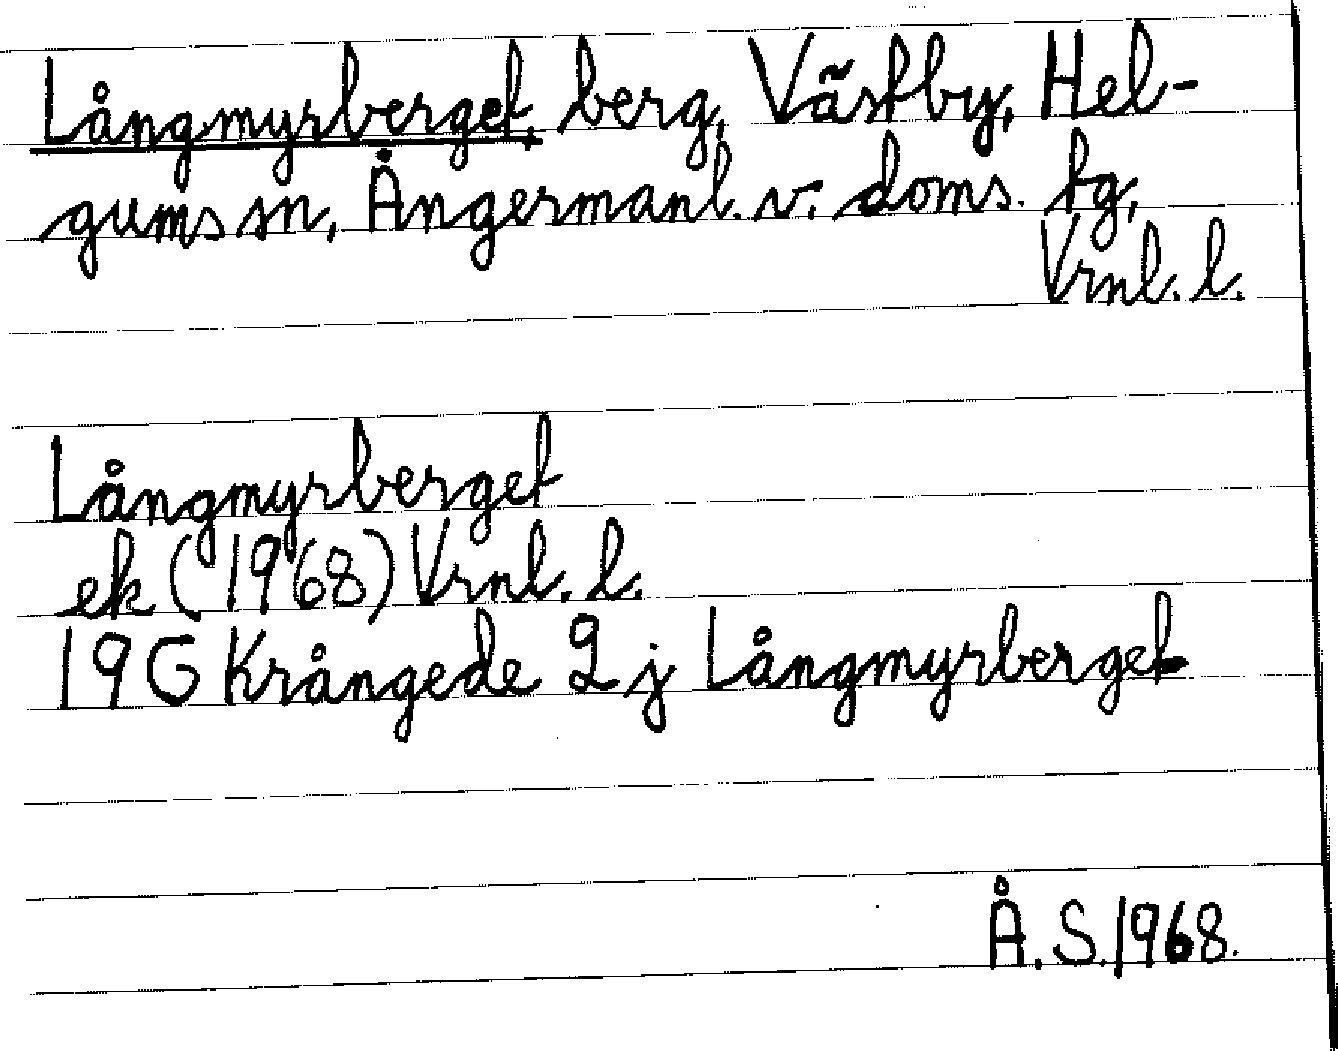 Långmyrberget, berg, Västby, Hel-
gums sn, Ångermanl. v. doms. tg,
Vrnl. l.
Långmyrberget
ek (1968) Vrnl. l.
19G Krångede 2 j Långmyrberget
Å. S. 1968.